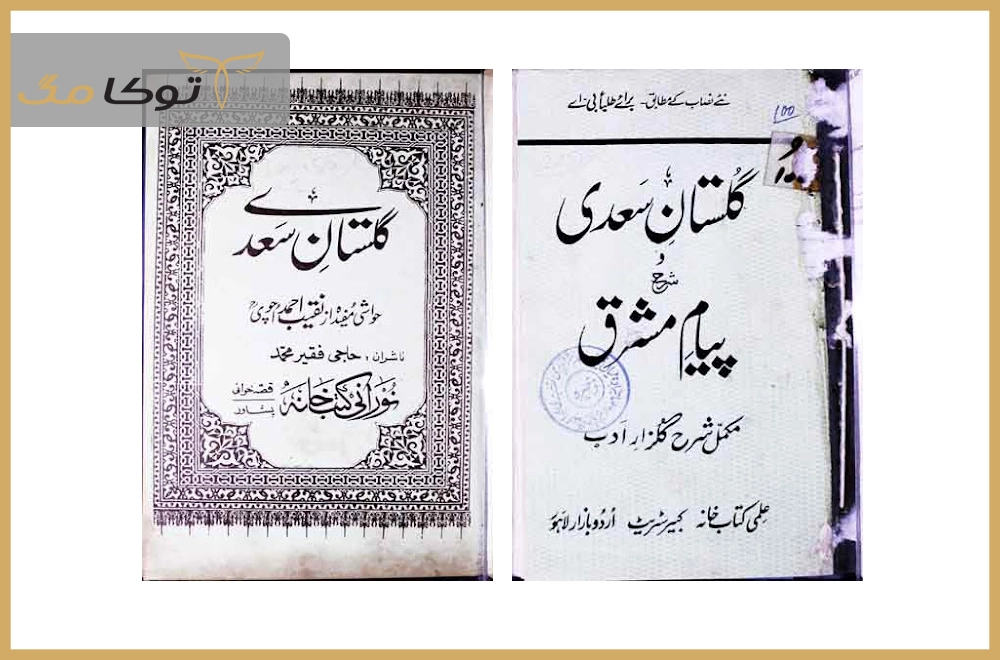 توکا مگ
نئے نصاب کے مطابق - برائے طلباء بی - اے
100
گلستانِ سعدی
و
شرح
پیامِ مشرق
مکمل شرح گلزارِ ادب
علمی کتاب خانہ کبیر سٹریٹ اُردو بازار لاہور
گلستانِ سعدے
حواشی مفیدہ از نقیب احمد
ناشران، حاجی فقیر محمد
نورانی کتب خانہ قصہ خوانی پشاور